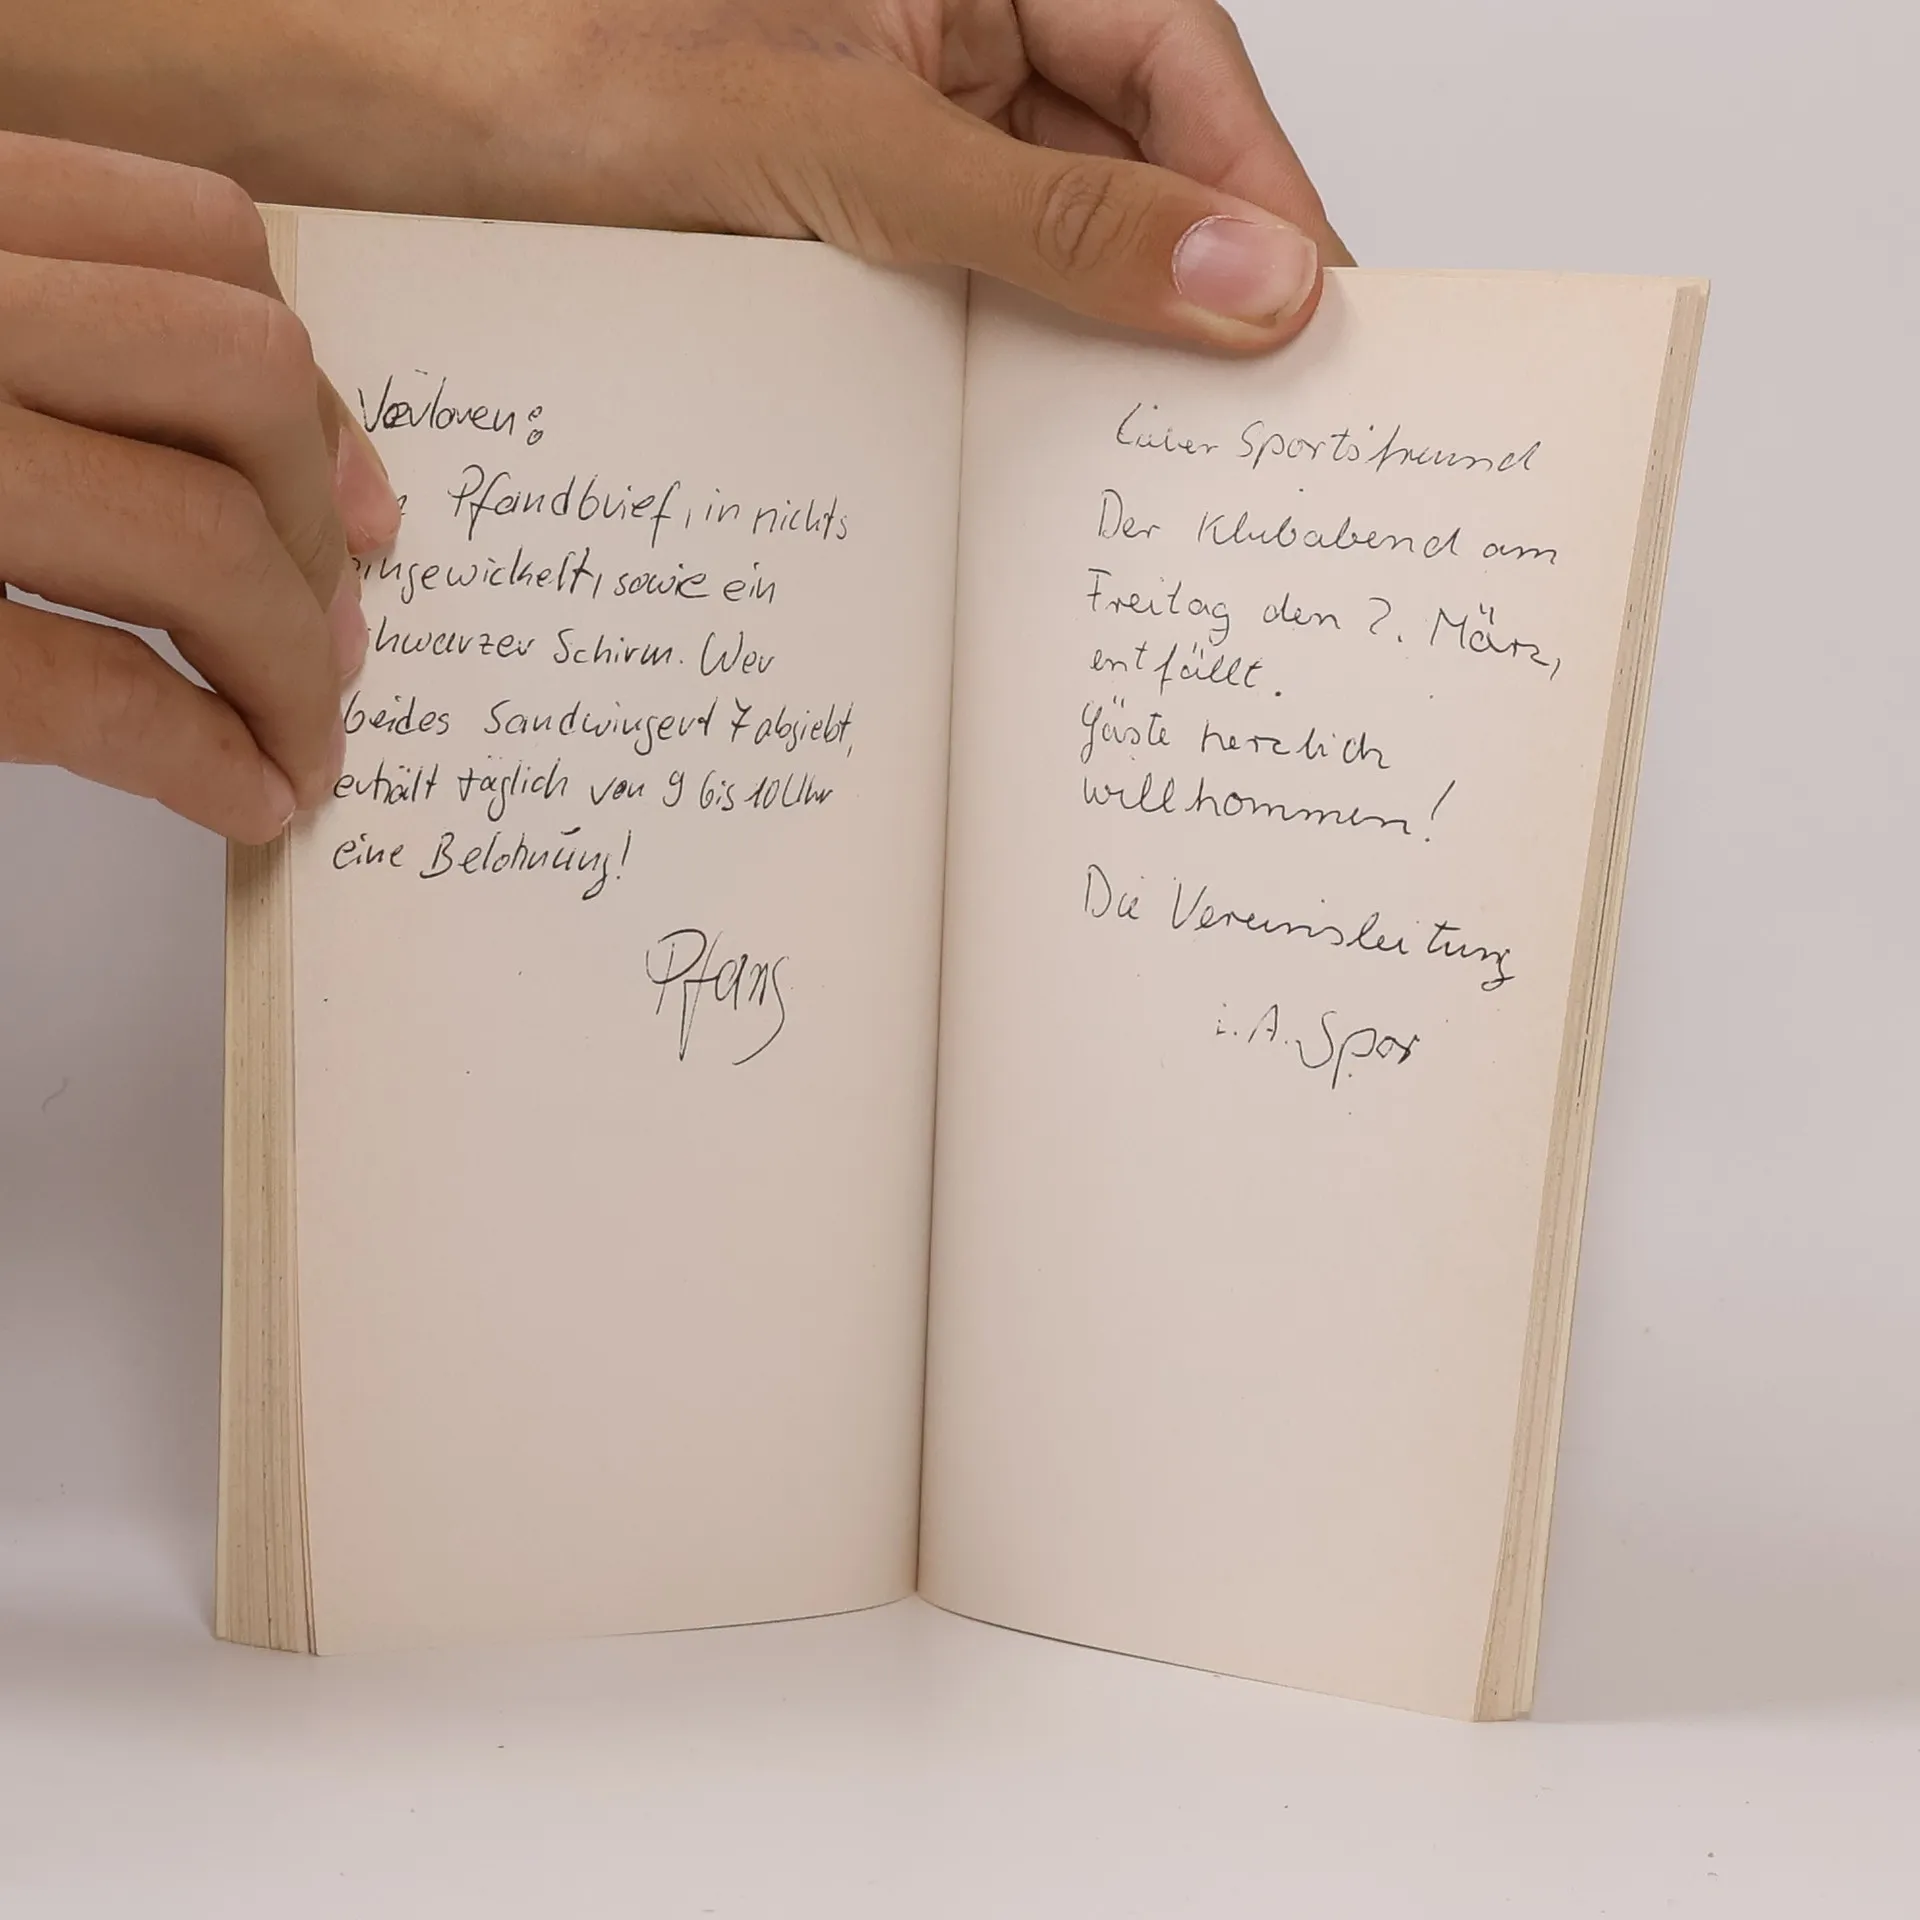 Verloren:
Pfandbrief, in nichts
eingewickelt, sowie ein
schwarzer Schirm. Wer
beides Sandwingert 7 abgiebt,
erhält täglich von 9 bis 10 Uhr
eine Belohnung!
Pfang
Lieber Sportsfreund
Der Klubabend am
Freitag den 2. März,
entfällt.
Gäste herzlich
willkommen!
Die Vereinsleitung
i. A. Spor